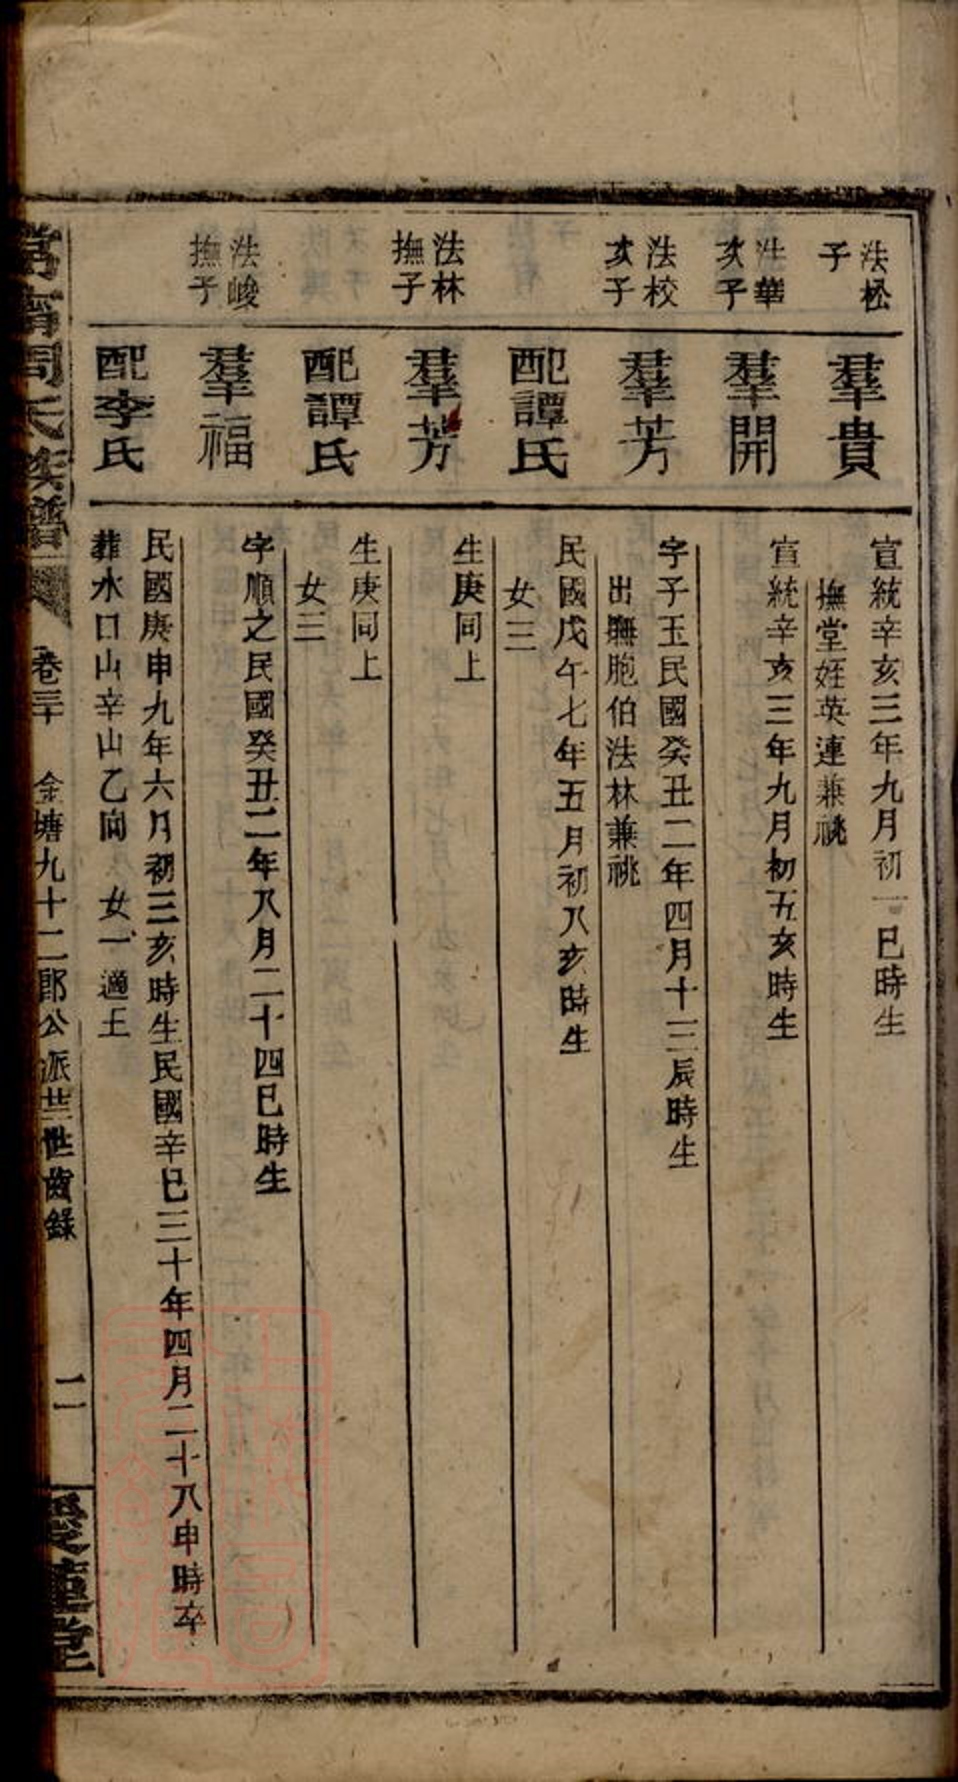 法松
子
羣貴
宣統辛亥三年九月初一巳時生
撫堂姪英連兼祧
法華
次子
羣開
宣統辛亥三年九月初五亥時生
法校
次子
羣芳
字子玉民國癸丑二年四月十三辰時生
出撫胞伯法林兼祧
配譚氏
民國戊午七年五月初八亥時生
女三
法林
撫子
羣芳
生庚同上
配譚氏
生庚同上
女三
法峻
撫子
羣福
字順之民國癸丑二年八月二十四巳時生
配李氏
民國庚申九年六月初三亥時生民國辛巳三十年四月二十八申時卒
葬水口山辛山乙向 女一適王
常甯周氏族譜 卷三十 金塘九十二郎公派廿三世齒錄 二 愛蓮堂